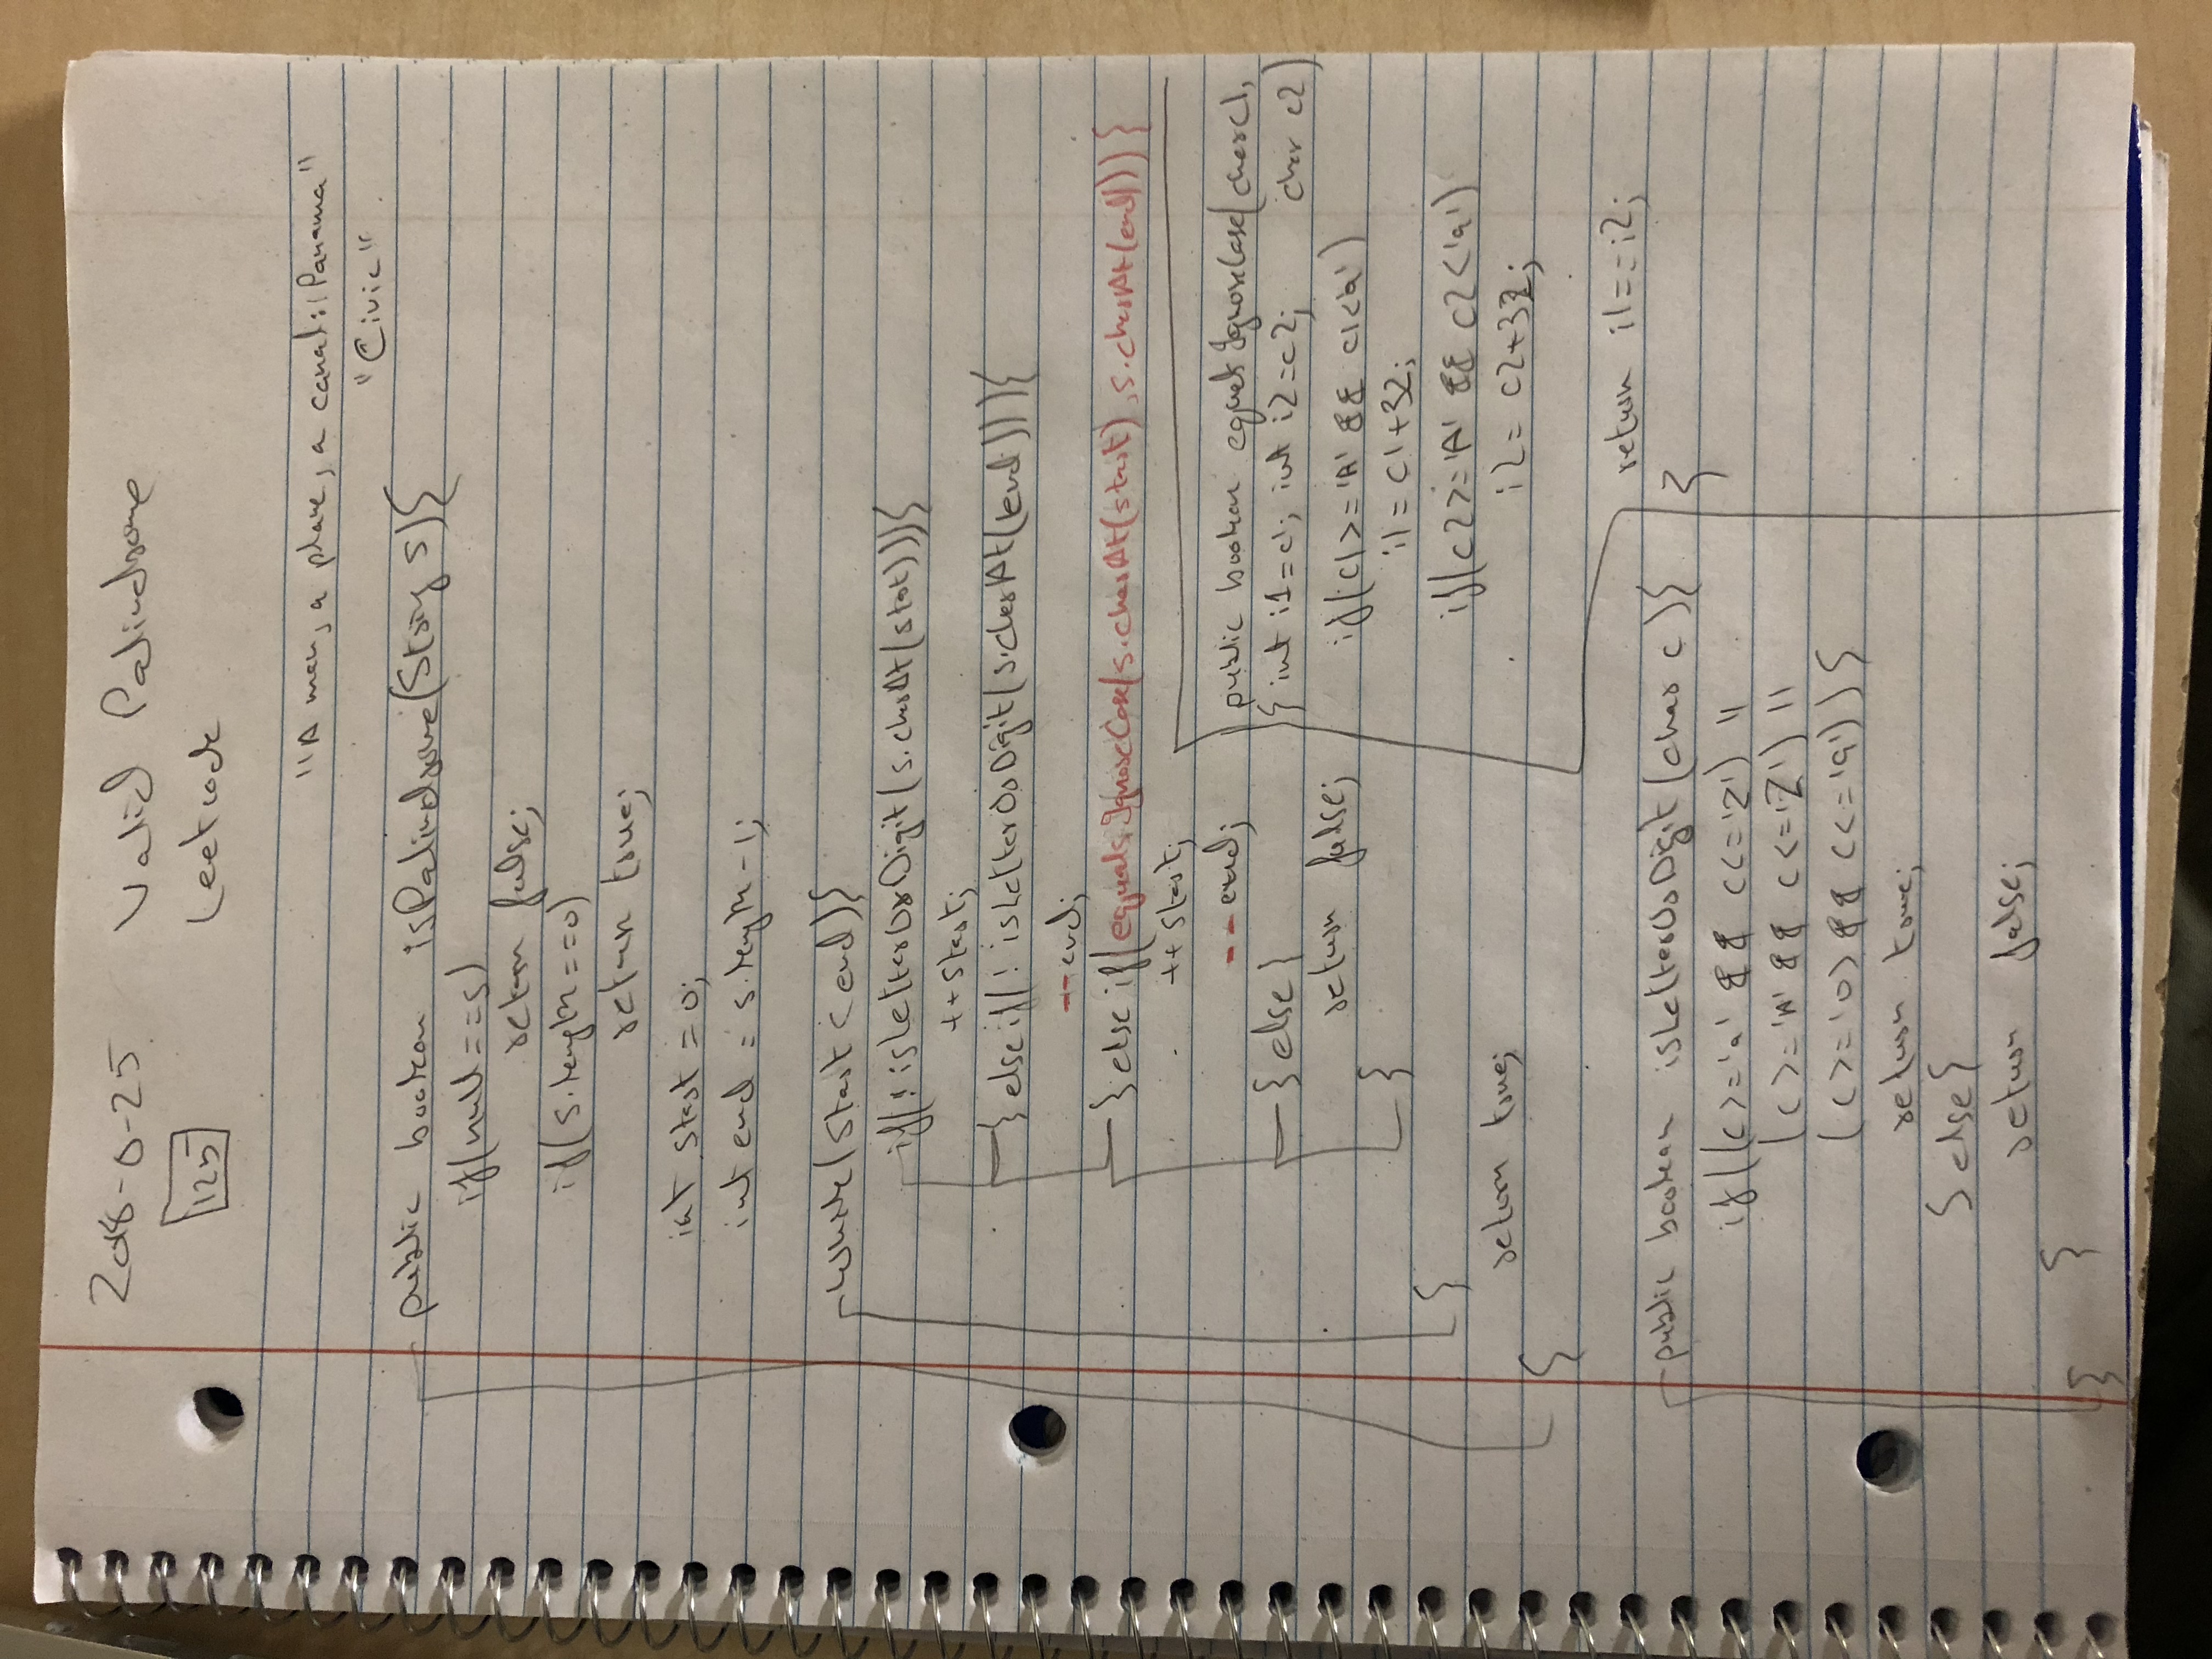 2018-0-25 Valid Palindrome
125 Leetcode
"A man, a plane, a canal: Panama"
"Civic"
public boolean isPalindrome(String s){
if(null==s)
return false;
if(s.length==0)
return true;
int start = 0;
int end = s.length-1;
while(start < end){
if(!isLetterOrDigit(s.charAt(start))){
++start;
}else if(!isLetterOrDigit(s.charAt(end))){
--end;
}else if(equalsIgnoreCase(s.charAt(start),s.charAt(end))){
++start;
--end;
}else{
return false;
}
}
return true;
}
public boolean equalsIgnoreCase(char c1,
char c2)
{ int i1=c1; int i2=c2;
if(c1>='A' && c1<'a')
i1=c1+32;
if(c2>='A' && c2<'a')
i2=c2+32;
return i1==i2;
}
public boolean isLetterOrDigit(char c){
if((c>='a' && c<='z') ||
(c>='A' && c<='Z') ||
(c>='0' && c<='9')){
return true;
}else{
return false;
}
}